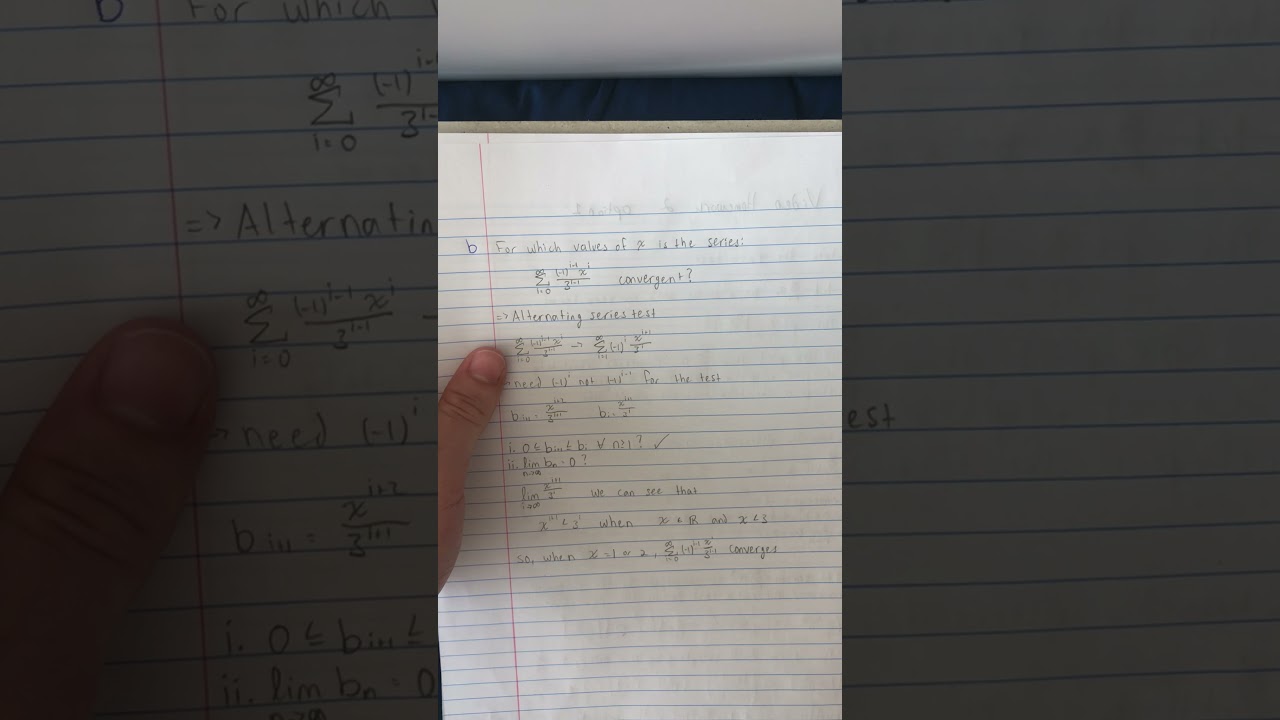 b For which values of x is the series:
∞ Σ i=0 (-1)^{i-1} x^i / 3^{i-1} convergent?
=> Alternating series test
∞ Σ i=0 (-1)^{i-1} x^i / 3^{i-1} → ∞ Σ i=1 (-1)^i x^{i+1} / 3^i
need (-1)^i not (-1)^{i-1} for the test
b_{i+1} = x^{i+2} / 3^{i+1} b_i = x^{i+1} / 3^i
i. 0 ≤ b_{i+1} ≤ b_i ∀ n≥1? ✓
ii. lim n→∞ b_n = 0?
lim i→∞ x^{i+1} / 3^i We can see that
x^{i+1} < 3^i when x ∈ ℝ and x < 3
so, when x = 1 or 2, ∞ Σ i=0 (-1)^{i-1} x^i / 3^{i-1} converges